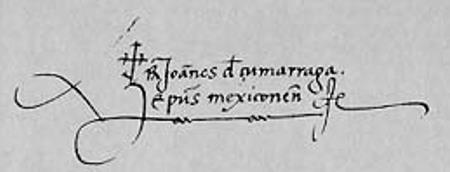 fr Joānes d̄ çumarraga.
ep̄us mexiconeñ